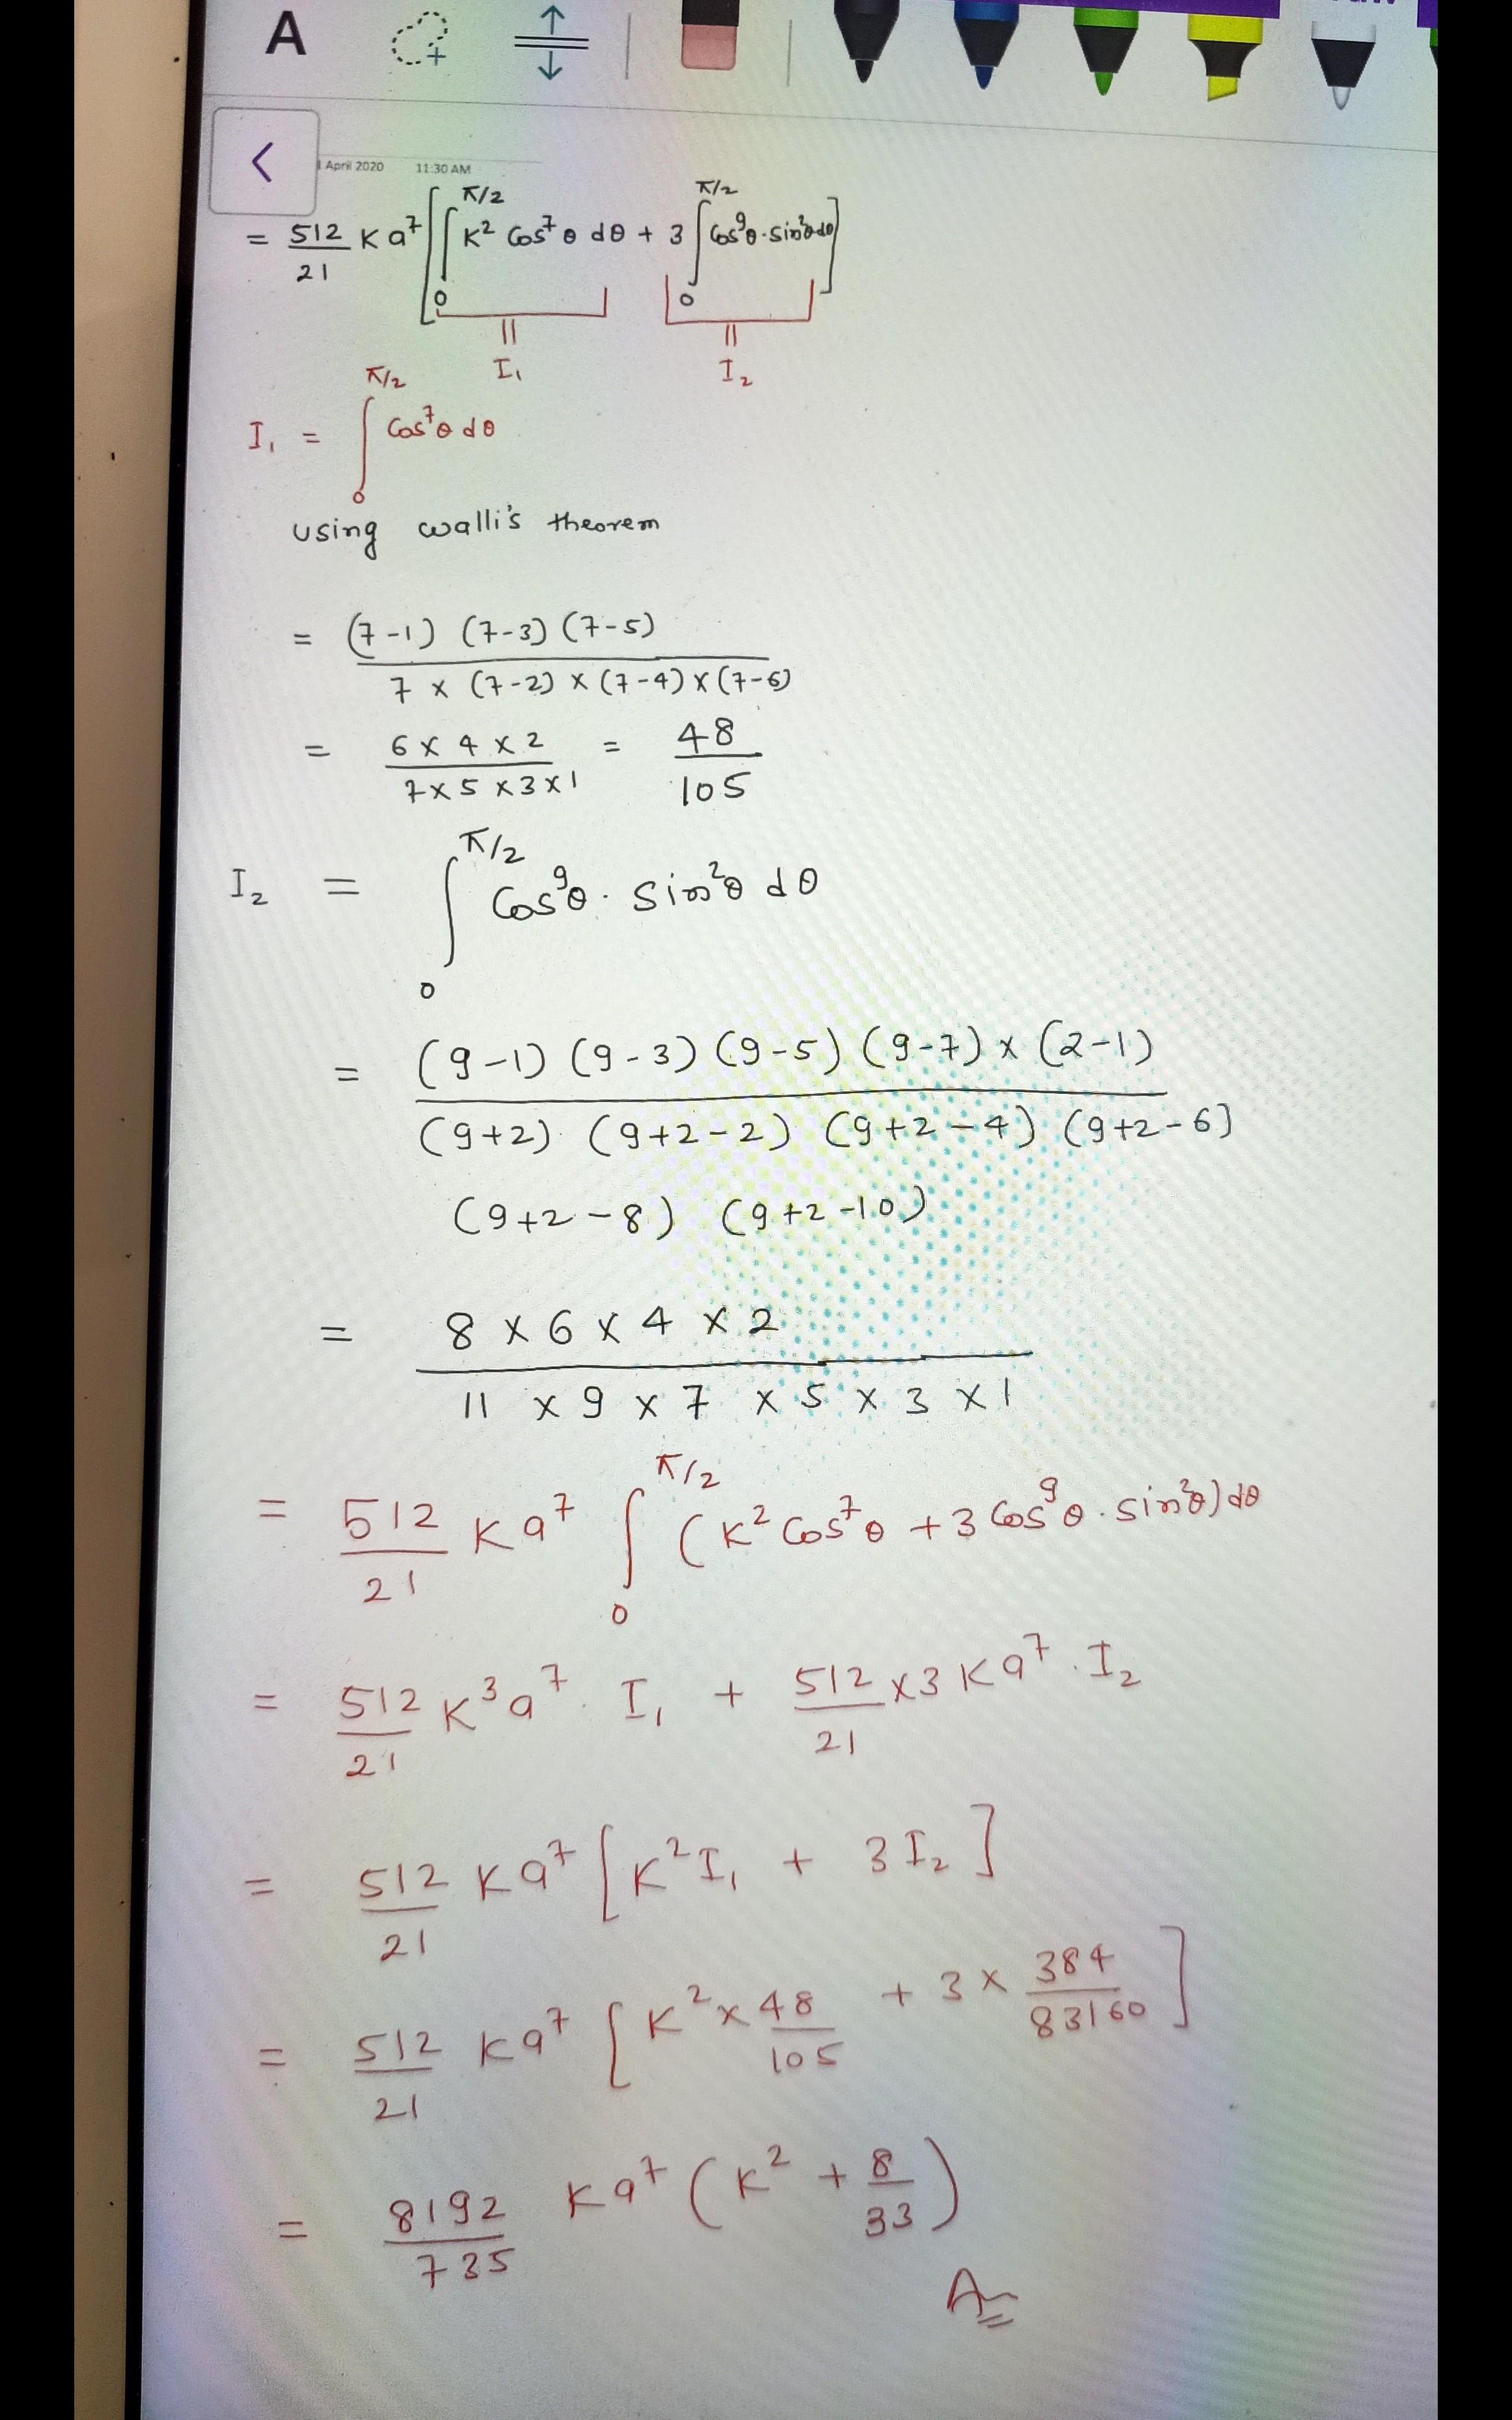 A
April 2020 11:30 AM
= 512/21 K a⁷ [ ∫₀^(π/2) K² Cos⁷θ dθ + 3 ∫₀^(π/2) Cos⁹θ · sin²θ dθ ]
|| ||
I₁ I₂
I₁ = ∫₀^(π/2) Cos⁷θ dθ
using walli's theorem
= (7-1) (7-3) (7-5) / 7 × (7-2) × (7-4) × (7-6)
= 6 × 4 × 2 / 7 × 5 × 3 × 1 = 48/105
I₂ = ∫₀^(π/2) Cos⁹θ · Sin²θ dθ
= (9-1) (9-3) (9-5) (9-7) × (2-1) / (9+2) (9+2-2) (9+2-4) (9+2-6)
(9+2-8) (9+2-10)
= 8 × 6 × 4 × 2 / 11 × 9 × 7 × 5 × 3 × 1
= 512/21 K a⁷ ∫₀^(π/2) (K² Cos⁷θ + 3 Cos⁹θ · sin²θ) dθ
= 512/21 K³ a⁷ · I₁ + 512/21 × 3 K a⁷ · I₂
= 512/21 K a⁷ [ K² I₁ + 3 I₂ ]
= 512/21 K a⁷ [ K² × 48/105 + 3 × 384/83160 ]
= 8192/735 K a⁷ ( K² + 8/33 )